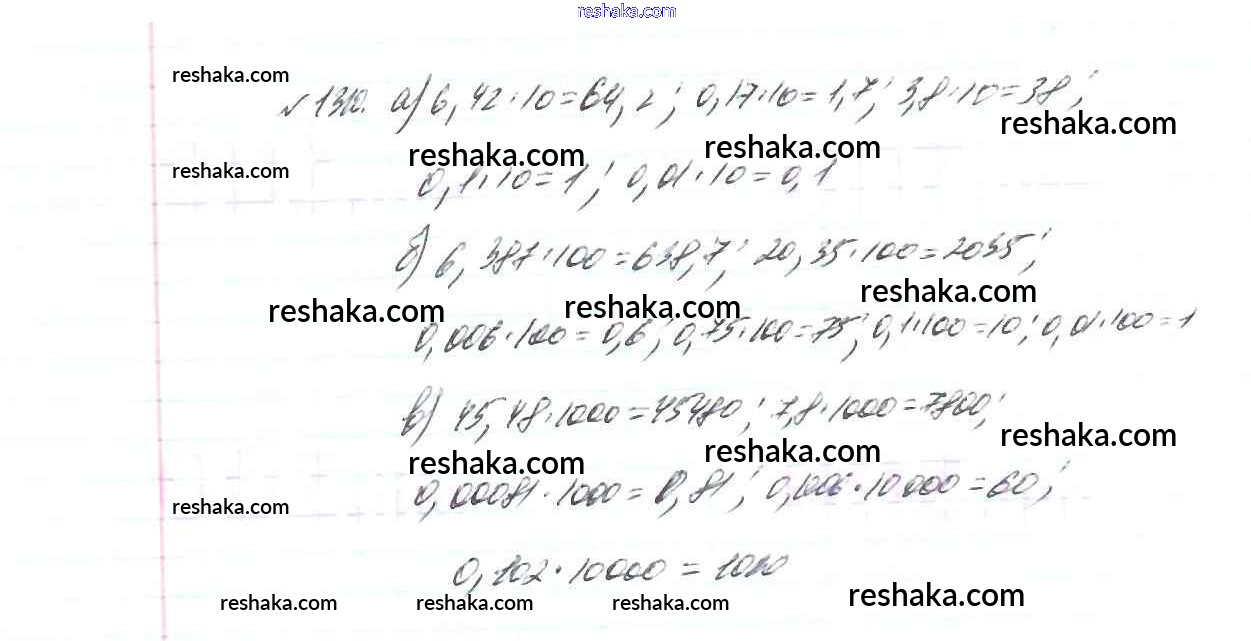 reshaka.com
reshaka.com
№1310. а) 6,42·10=64,2; 0,17·10=1,7; 3,8·10=38;
reshaka.com
reshaka.com reshaka.com
reshaka.com
0,1·10=1; 0,01·10=0,1
б) 6,387·100=638,7; 20,35·100=2035;
reshaka.com reshaka.com reshaka.com
0,006·100=0,6; 0,75·100=75; 0,1·100=10; 0,01·100=1
в) 45,48·1000=45480; 7,8·1000=7800;
reshaka.com reshaka.com reshaka.com
0,00081·1000=0,81; 0,006·10000=60;
reshaka.com
0,102·10000=1020
reshaka.com reshaka.com reshaka.com reshaka.com